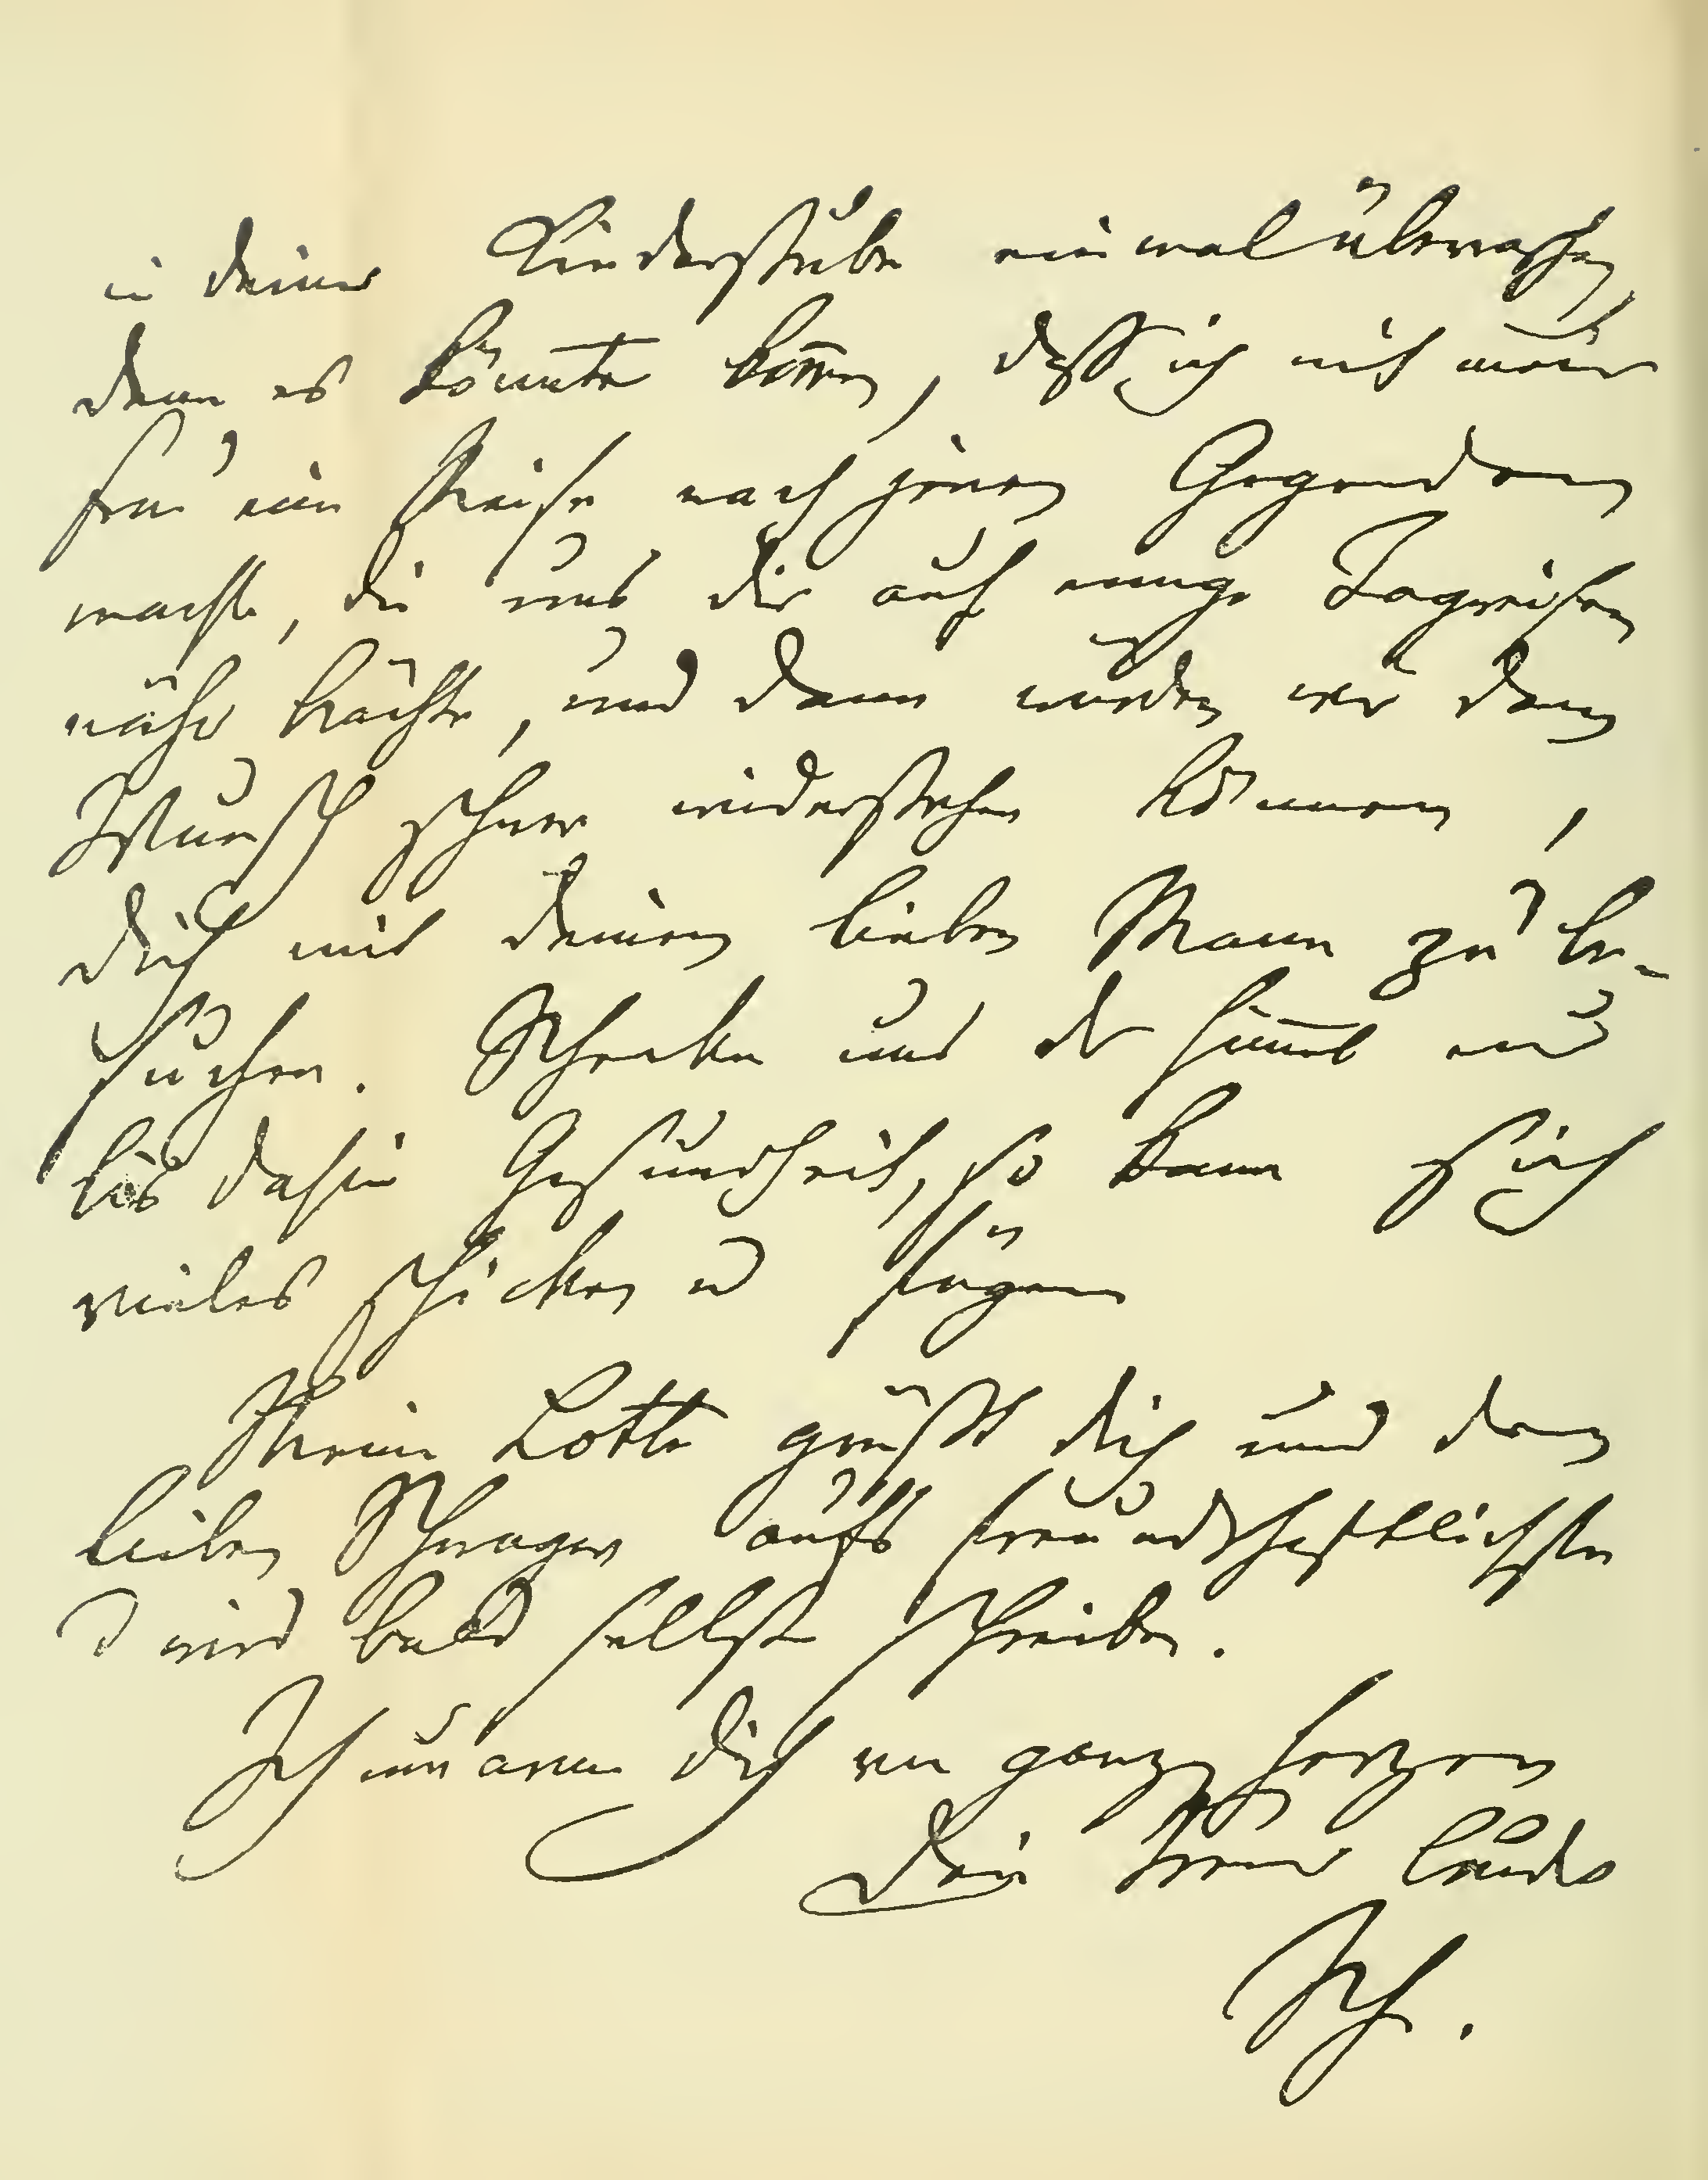 in deiner Kinderstube einmal überraschen,
denn es könnte kom̅en, daß ich mit meiner
Frau eine Reise nach jenen Gegenden
machte, die uns dir auf einige Tagreisen
näher brächte, und dann würden wir dem
Wunsch schwer widerstehen können,
dich mit deinem lieben Mann zu be-
suchen. Schenke uns der Him̅el nur
bis dahin Gesundheit, so kann sich
vieles schicken u fügen
Meine Lotte grüßt dich und den
lieben Schwager aufs freundschaftlichste
u wird bald selbst schreiben.
Ich umarme dich von ganzem Herzen
Dein treuer Bruder
Sch.